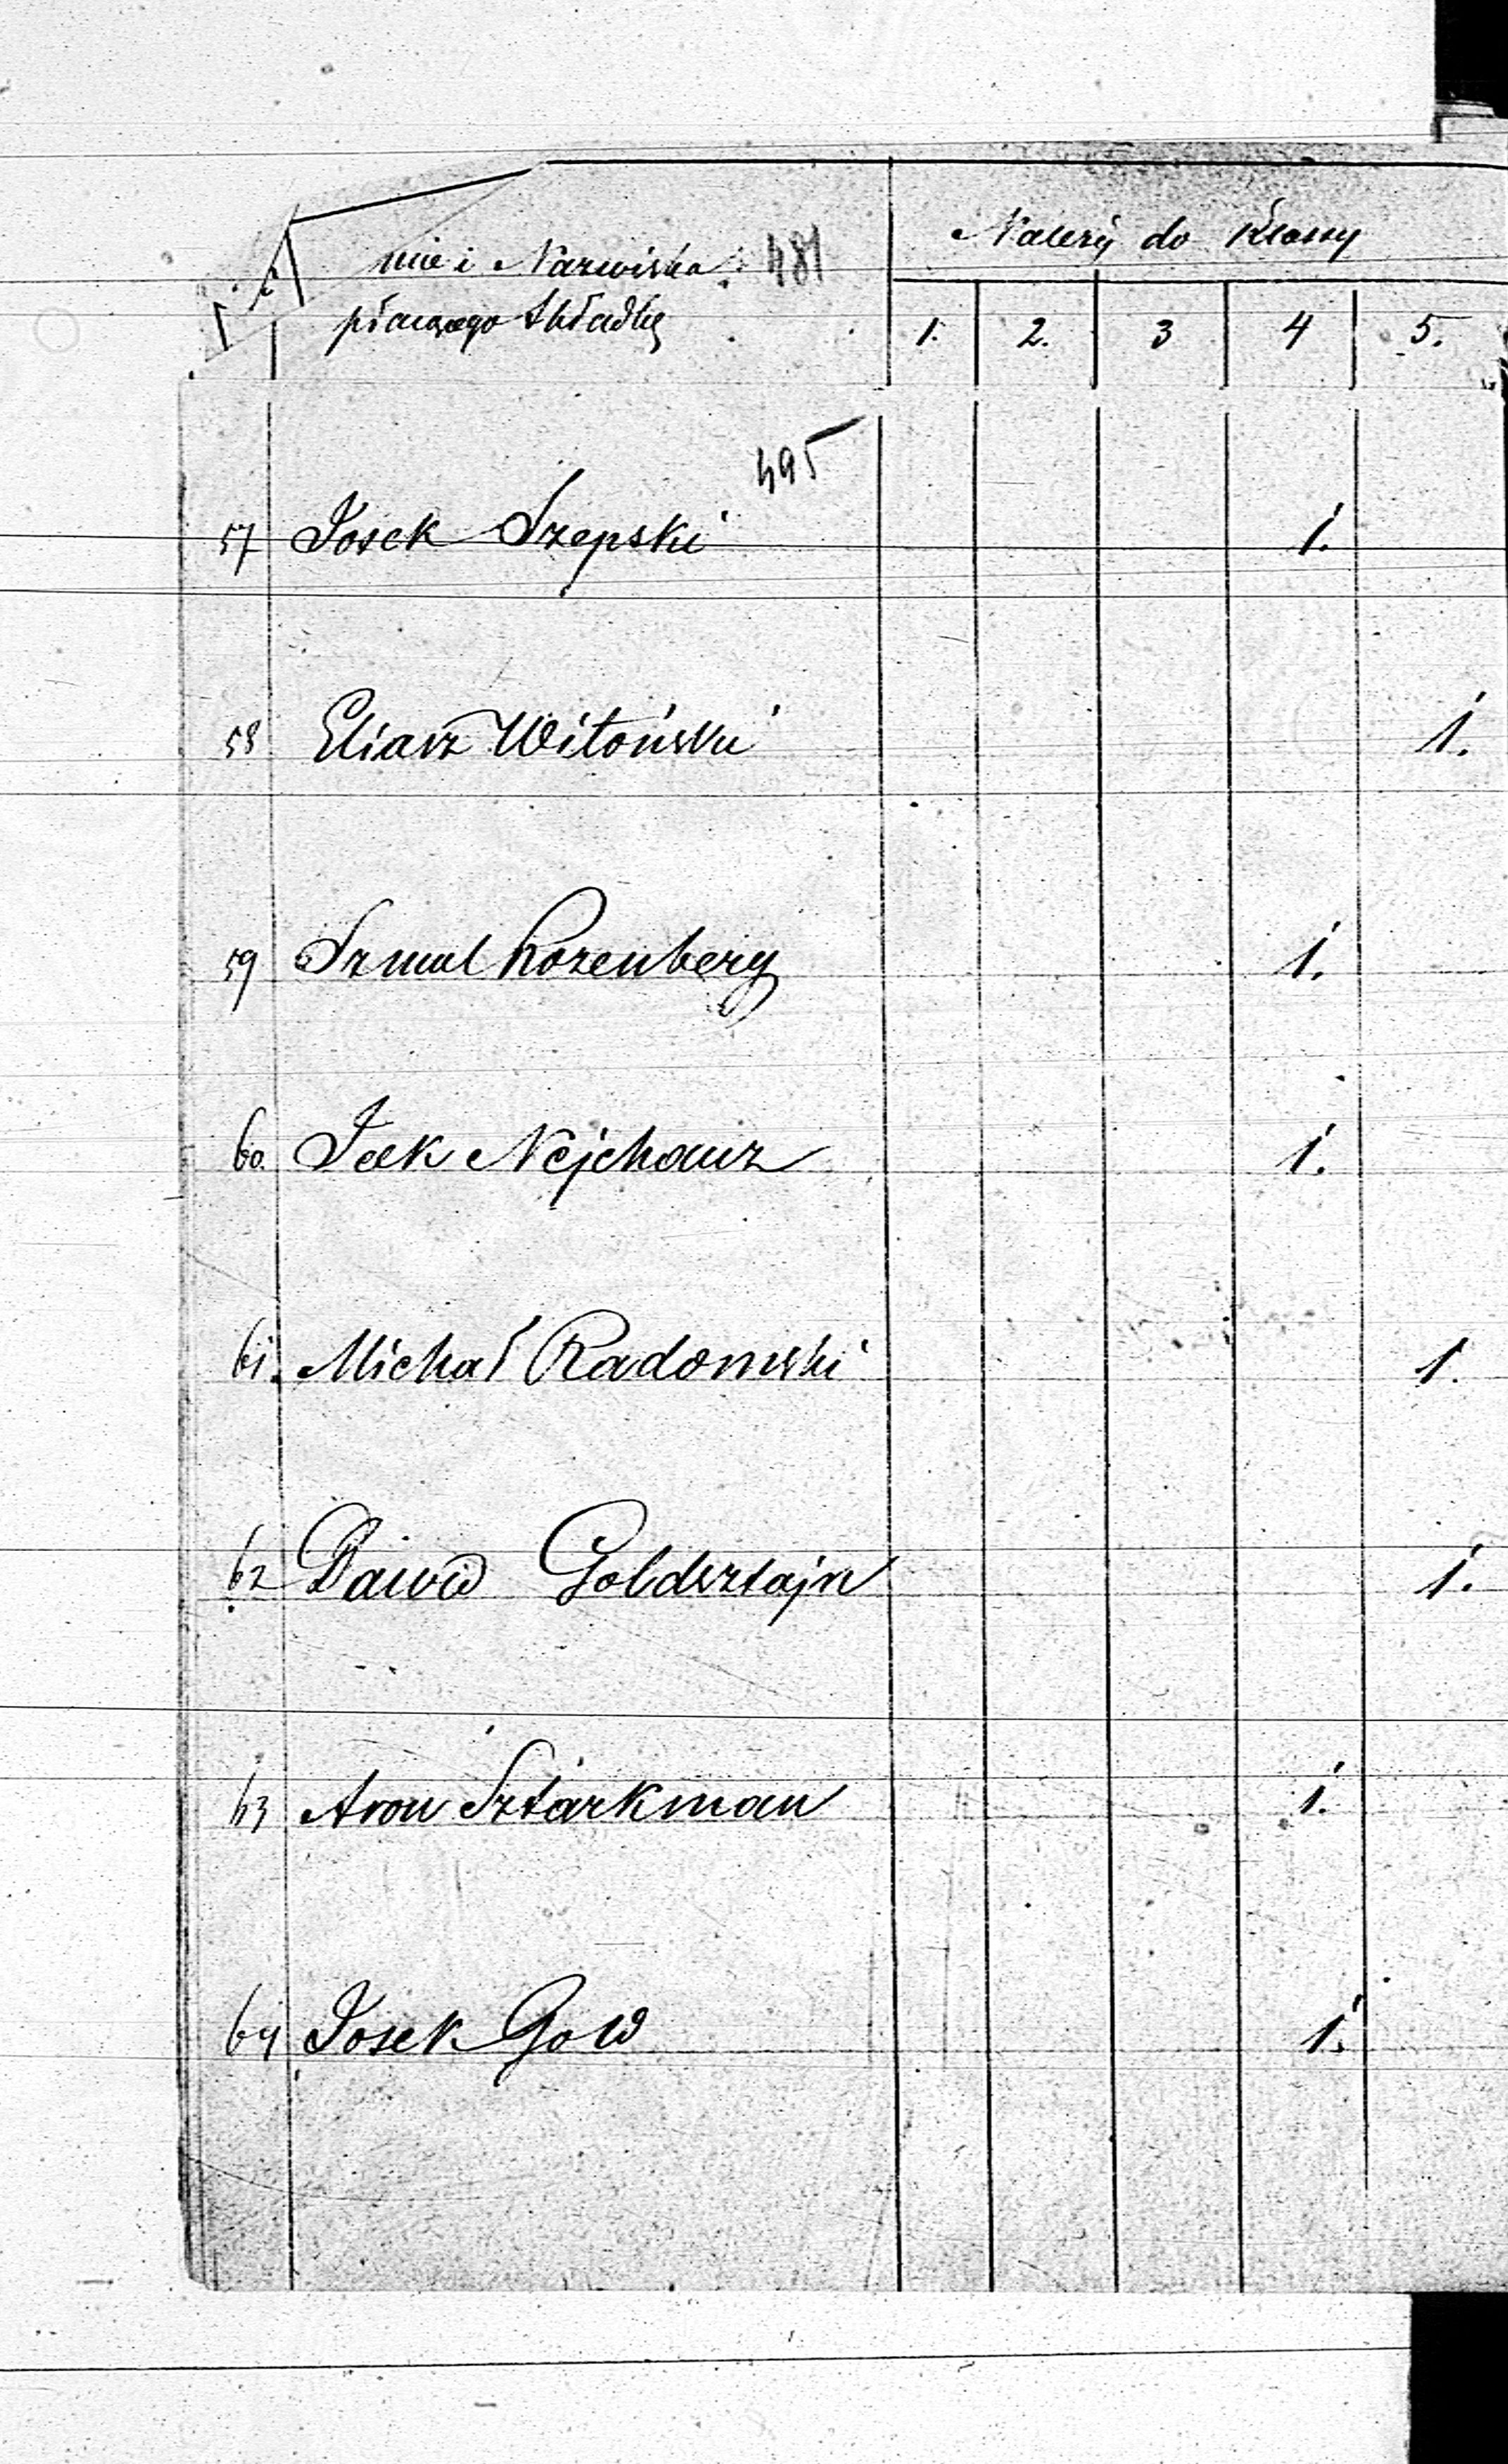 mie i Nazwiska 481
płacącego składkę
Należy do Klassy
1. 2. 3 4 5.
495
57 Josek Szepski 1.
58 Eliasz Witoński 1.
59 Szmul Rozenberg 1.
60. Icek Nejchauz 1.
61. Michał Radomski 1.
62 Dawid Goldsztajn 1.
63 Aron Sztarkman 1.
64 Josek Gow 1.